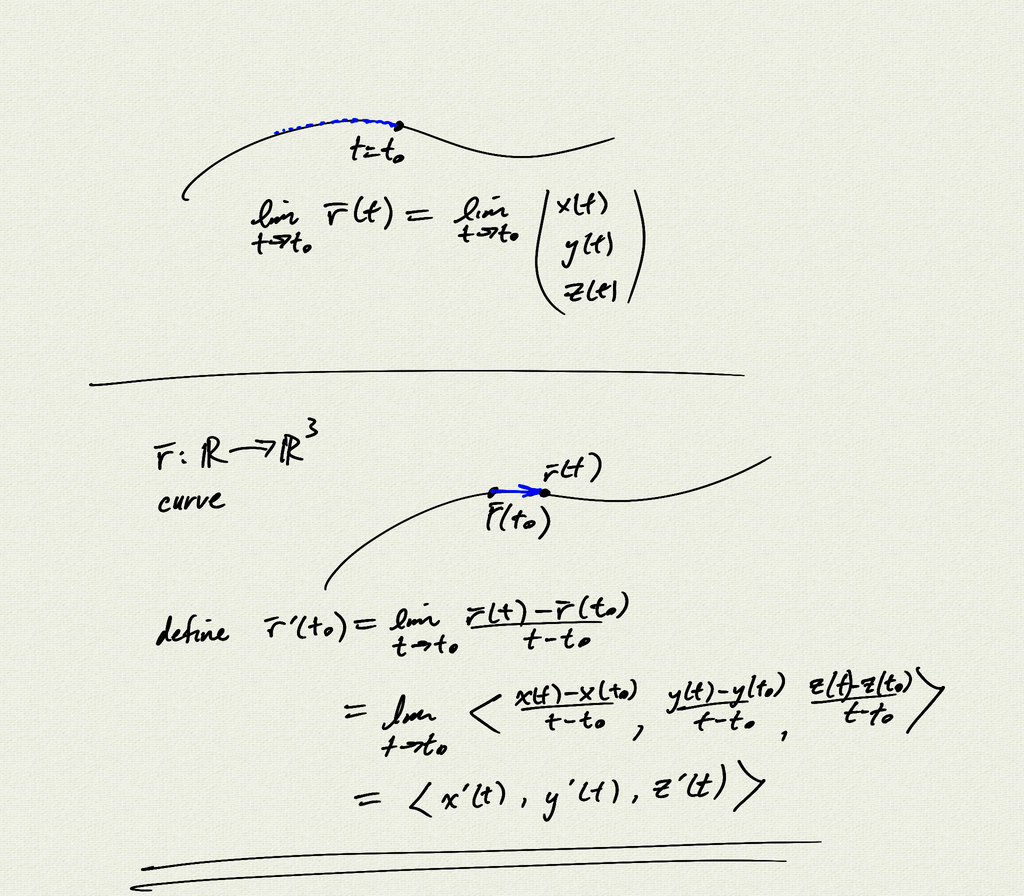 t=t₀
lim t→t₀ r̄(t) = lim t→t₀ (x(t) y(t) z(t))
r̄: ℝ→ℝ³
curve
r̄(t)
r̄(t₀)
define r̄'(t₀) = lim t→t₀ r̄(t)-r̄(t₀) / t-t₀
= lim t→t₀ < x(t)-x(t₀) / t-t₀ , y(t)-y(t₀) / t-t₀ , z(t)-z(t₀) / t-t₀ >
= < x'(t), y'(t), z'(t) >